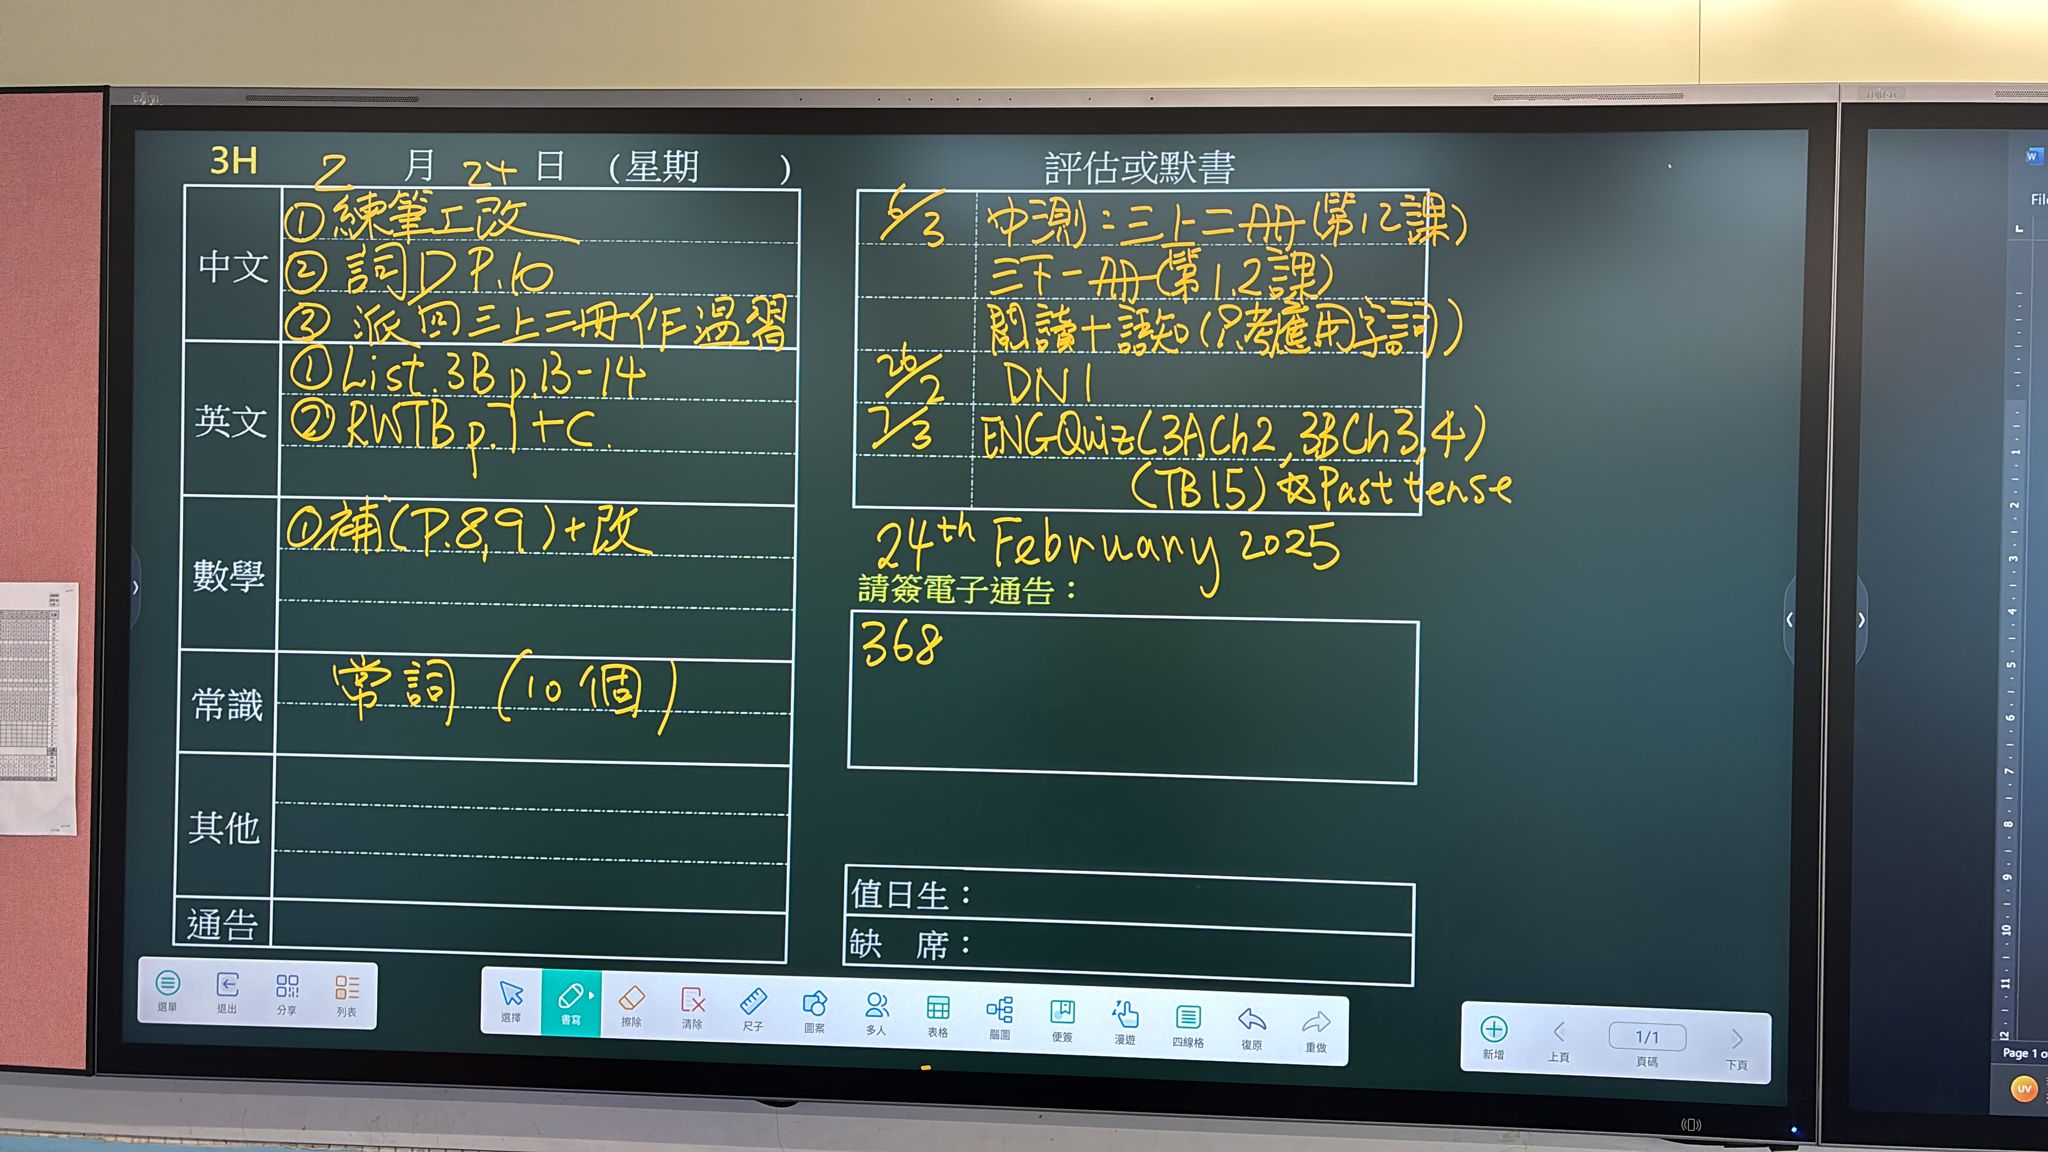 3H 2 月 24 日 (星期 )
中文
①練筆工改
②詞D P.10
③派回三上二冊作溫習
英文
①List.3B p.13-14
②RWTB p.7+C.
數學
①補(P.8,9)+改
常識
常詞 (10個)
其他
通告
評估或默書
6/3 中測:三上二冊(第1,2課)
三下一冊(第1,2課)
閱讀+語知(思考應用字詞)
26/2 DN1
7/3 ENGQuiz(3ACh2,3BCh3,4)
(TB15)☆Past tense
24th February 2025
請簽電子通告:
368
值日生:
缺 席:
選單 退出 分享 列表
選擇 書寫 擦除 清除 尺子 圖案 多人 表格 腦圖 便簽 漫遊 四線格 復原 重做
新增 上頁 1/1 頁碼 下頁
Page 1 o
UV